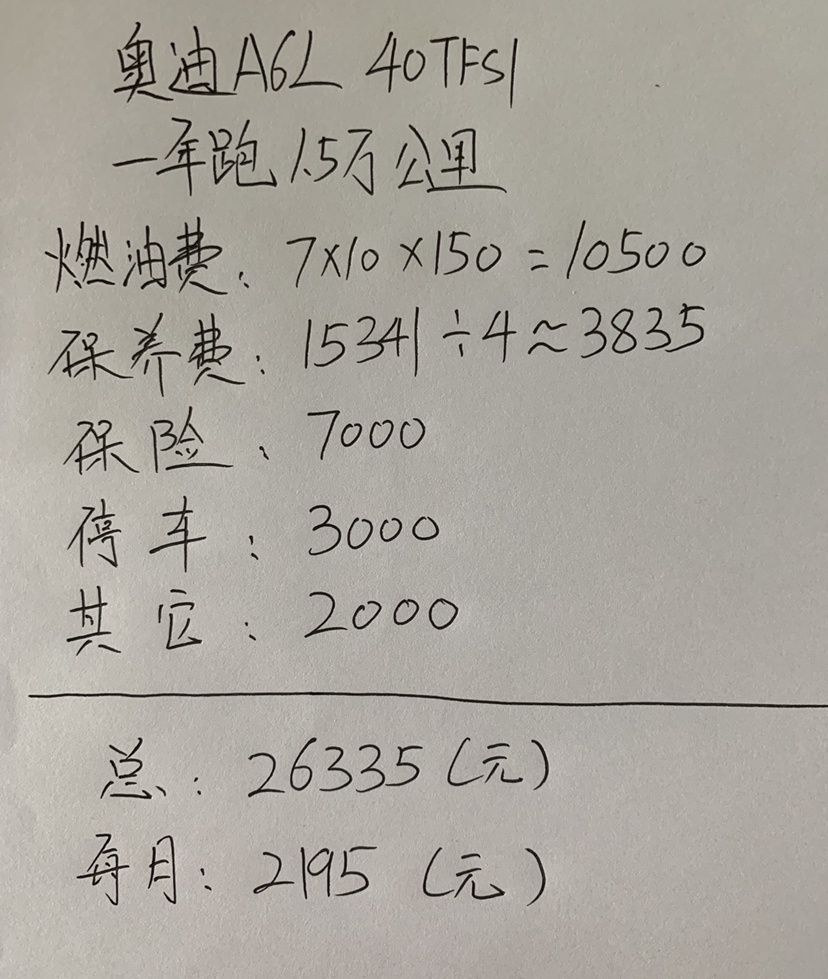 奥迪A6L 40TFSI
一年跑1.5万公里
燃油费：7×10×150=10500
保养费：15341÷4≈3835
保险：7000
停车：3000
其它：2000
总：26335(元)
每月：2195(元)